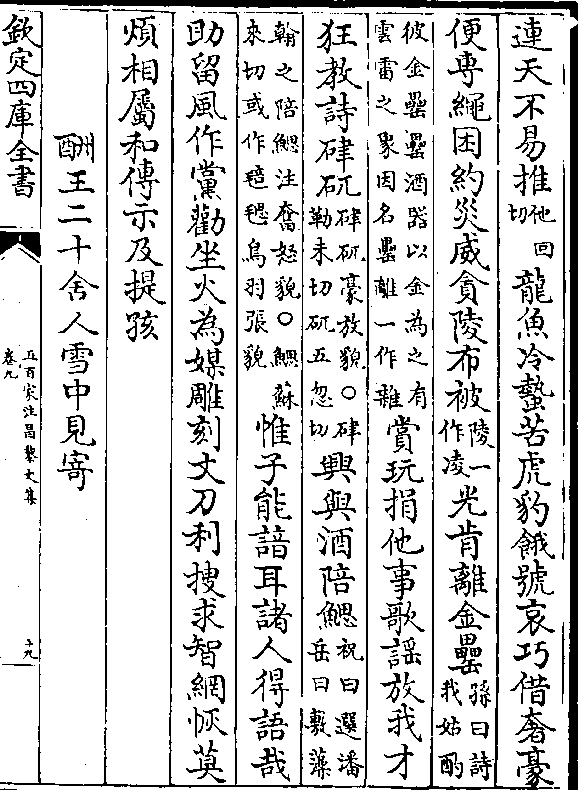 連天不易推他回切龍魚冷蟄苦虎豹餓號哀巧借奢豪
便專繩困約災威貪陵布被陵一作凌光肯離金罍孫曰詩我姑酌
彼金罍罍酒器以金為之有雲雷之象因名罍離一作雜賞玩捐他事歌謠放我才
狂教詩硉矹硉矹豪放貌○硉勒未切矹五忽切興與酒陪鰓祝曰選潘岳曰敷藻
翰之陪鰓注奮怒貌○鰓蘇來切或作毰毸鳥羽張貌惟子能諳耳諸人得語哉
助留風作黨勸坐火為媒雕刻文刀利搜求智網恢莫
煩相屬和傳示及提孩
酬王二十舍人雪中見寄
欽定四庫全書
五百家注昌黎文集
卷九
十九